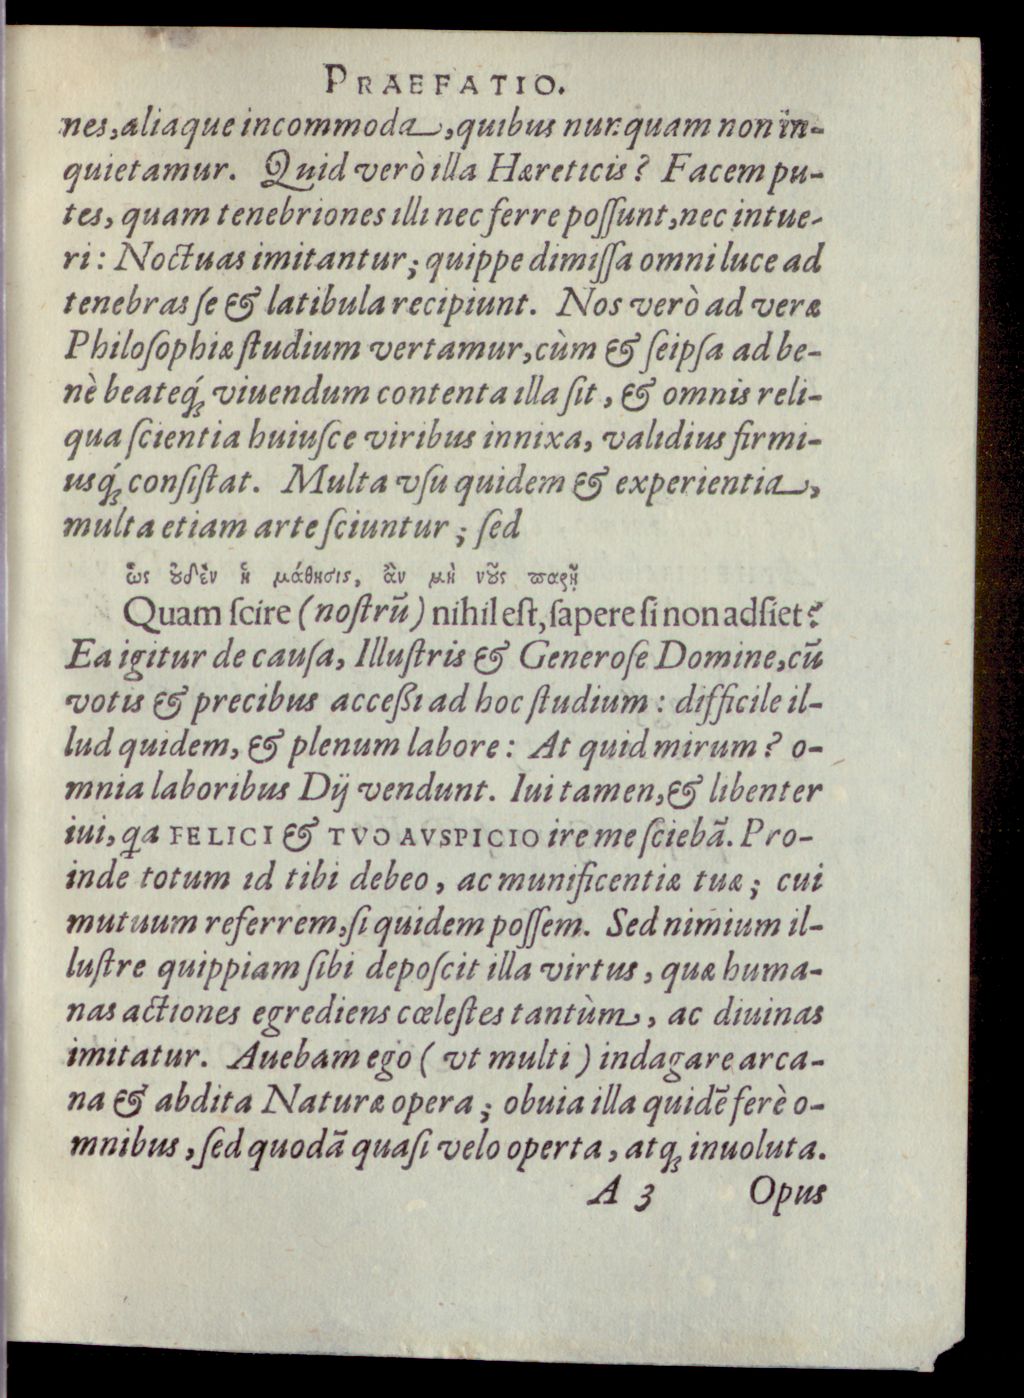 PRAEFATIO.
nes, aliaque incommoda, quibus nunquam non in-
quietamur. Quid verò illa Hæreticis? Facem pu-
tes, quam tenebriones illi nec ferre poſſunt, nec intue-
ri: Noctuas imitantur; quippe dimiſſa omni luce ad
tenebras ſe & latibula recipiunt. Nos verò ad veræ
Philoſophiæ ſtudium vertamur, cùm & ſeipſa ad be-
nè beateq́; viuendum contenta illa ſit, & omnis reli-
qua ſcientia huiuſce viribus innixa, validius firmi-
usq́; conſiſtat. Multa vſu quidem & experientia,
multa etiam arte ſciuntur; ſed
ὡς ȣ̓δὲν ἡ μάθησις, ἂν μὴ νȣ͂ς παρῇ
Quam ſcire (noſtrũ) nihil eſt, ſapere ſi non adſiet?
Ea igitur de cauſa, Illuſtris & Generoſe Domine, cũ
votis & precibus acceßi ad hoc ſtudium: difficile il-
lud quidem, & plenum labore: At quid mirum? o-
mnia laboribus Dij vendunt. Iui tamen, & libenter
iui, qa FELICI & TVO AVSPICIO ire me ſciebã. Pro-
inde totum id tibi debeo, ac munificentiæ tuæ; cui
mutuum referrem, ſi quidem poſſem. Sed nimium il-
luſtre quippiam ſibi depoſcit illa virtus, quæ huma-
nas actiones egrediens cœleſtes tantùm, ac diuinas
imitatur. Auebam ego (vt multi) indagare arca-
na & abdita Naturæ opera; obuia illa quidẽ ferè o-
mnibus, ſed quodã quaſi velo operta, atq; inuoluta.
A 3 Opus